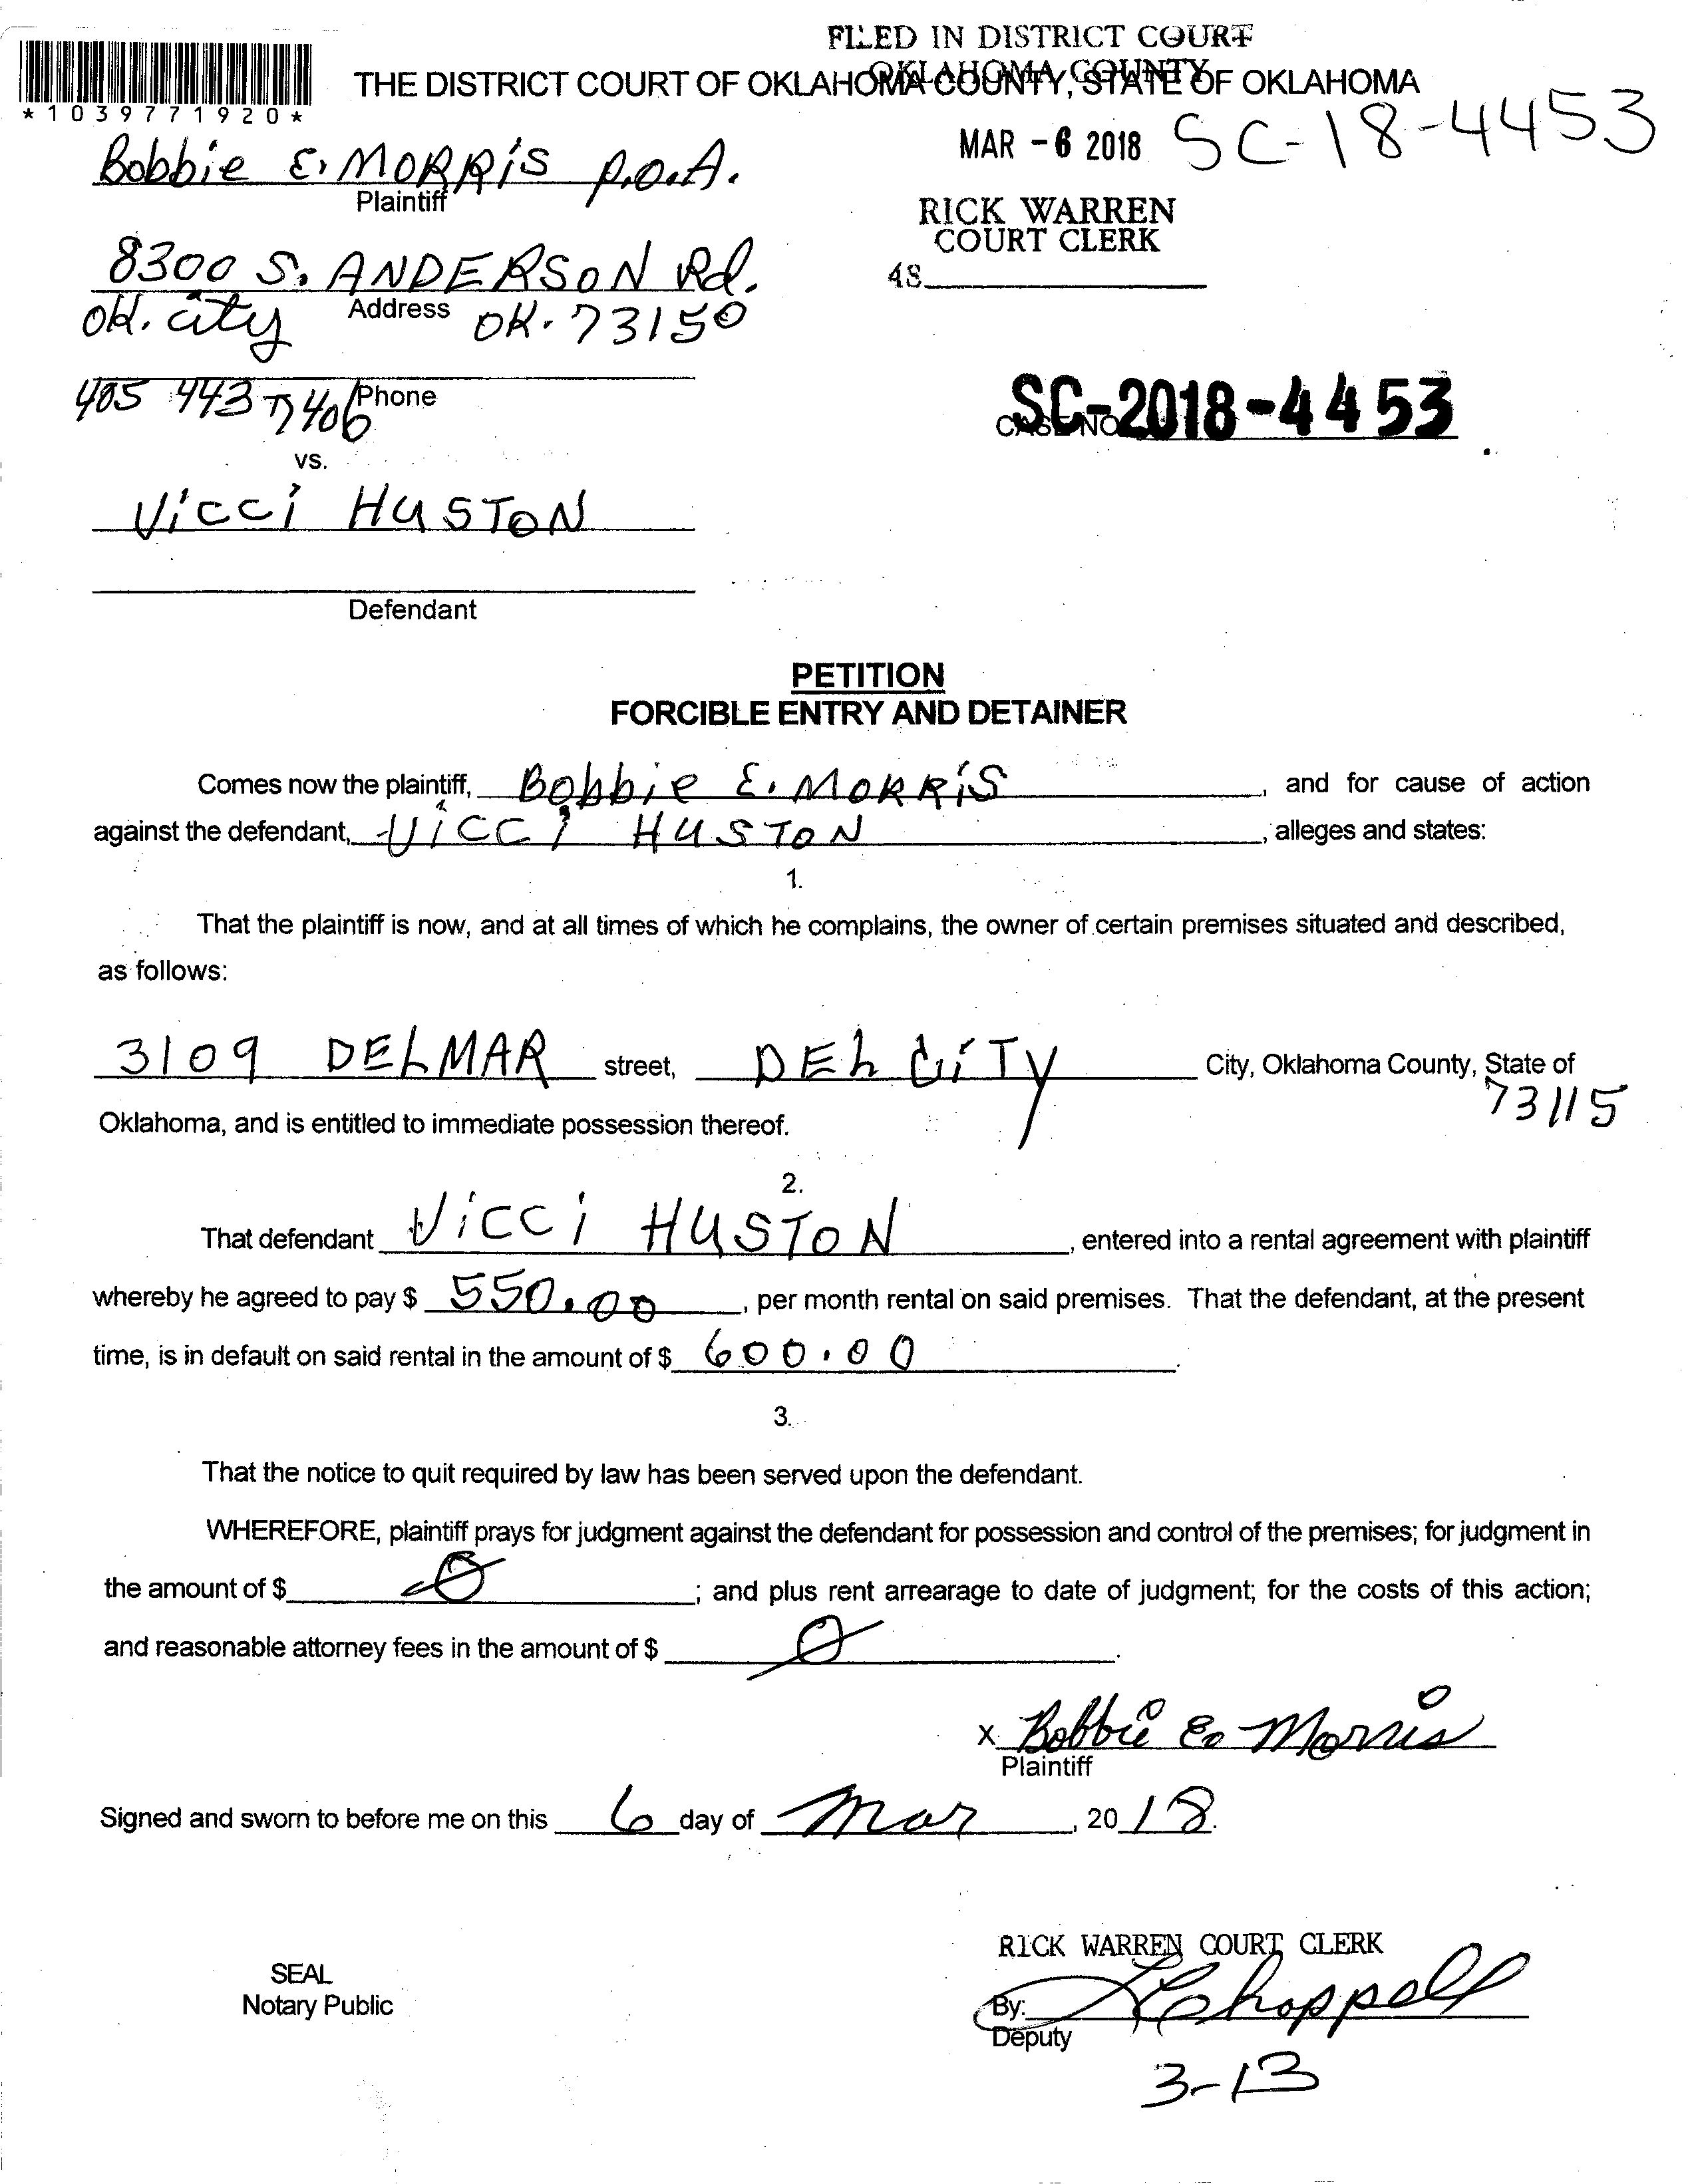 FILED IN DISTRICT COURT
OKLAHOMA COUNTY
THE DISTRICT COURT OF OKLAHOMA COUNTY, STATE OF OKLAHOMA
*1039771920*
MAR - 6 2018 SC-18-4453
Bobbie E. MORRIS P.O.A.
Plaintiff
RICK WARREN
COURT CLERK
48
8300 S. ANDERSON Rd.
Address
OK. City OK. 73150
405 443 7406 Phone
SC-2018-4453
CASE NO
vs.
Vicci HUSTON
Defendant
PETITION
FORCIBLE ENTRY AND DETAINER
Comes now the plaintiff, Bobbie E. MORRIS, and for cause of action
against the defendant, Vicci HUSTON, alleges and states:
1.
That the plaintiff is now, and at all times of which he complains, the owner of certain premises situated and described,
as follows:
3109 DELMAR street, DEL CITY City, Oklahoma County, State of
73115
Oklahoma, and is entitled to immediate possession thereof.
2.
That defendant Vicci HUSTON, entered into a rental agreement with plaintiff
whereby he agreed to pay $ 550.00, per month rental on said premises. That the defendant, at the present
time, is in default on said rental in the amount of $ 600.00.
3.
That the notice to quit required by law has been served upon the defendant.
WHEREFORE, plaintiff prays for judgment against the defendant for possession and control of the premises; for judgment in
the amount of $ 0; and plus rent arrearage to date of judgment; for the costs of this action;
and reasonable attorney fees in the amount of $ 0.
x Bobbie E. Morris
Plaintiff
Signed and sworn to before me on this 6 day of Mar, 2018.
RICK WARREN COURT CLERK
SEAL
Notary Public
By:
Deputy
3-13